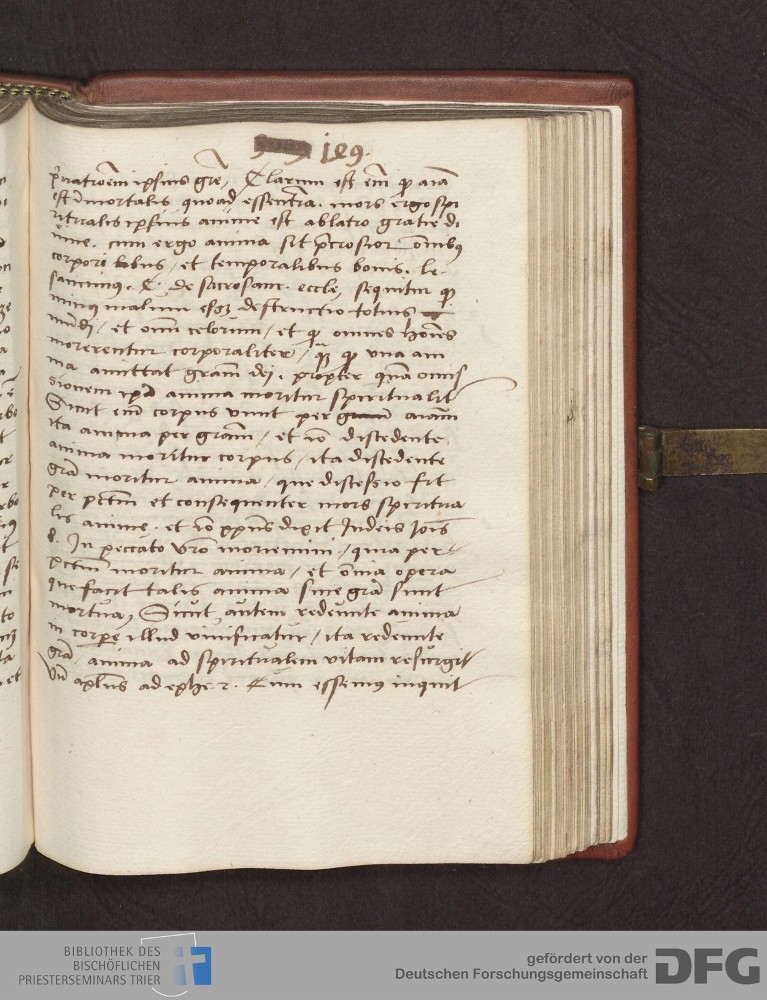 189.
p̄uatioēm ipsius grē, Clarum est em̄ qp aīa
est īmortalis quoad essentiā. mors ergo spi
ritualis ipsius anime est ablatio gratie di
uine. cum ergo anima sit p̄ciosior omībꝯ
corporibus, et temporalibus bonis. le.
sancimus. C. de sacrosanc. eccłe, sequitur qp
minꝯ malum essꝫ destructio totius
mūdi, et om̄ celorum, et qp omnes hōīes
morerentur corporaliter, qꝫ qp una ani
ma amittat gram̄ dei. propter quā omis
sionem ipā anima moritur spiritualiṫ
Sicut em̄ corpus viuit per aiam̄
ita anima per gram̄, et iō discedente
anima moritur corpus, ita discedente
grā moritur anima, que discessio fit
per pctm̄ et consequenter mors spiritua
lis anime. et iō xp̄us dixit Judeis Joīs
8. In peccato vr̄o moriemini, quia per
pctm̄ moritur anima, et om̄ia opera
que facit talis anima sine grā sunt
mortua, Sicut autem redeunte anima
in corpꝰ illud viuificatur, ita redeunte
grā anima ad spiritualem vitam resurgit
Vn̄ apłus ad ephe 2. Cum essemꝯ inquit
BIBLIOTHEK DES
BISCHÖFLICHEN
PRIESTERSEMINARS TRIER
gefördert von der
Deutschen Forschungsgemeinschaft
DFG